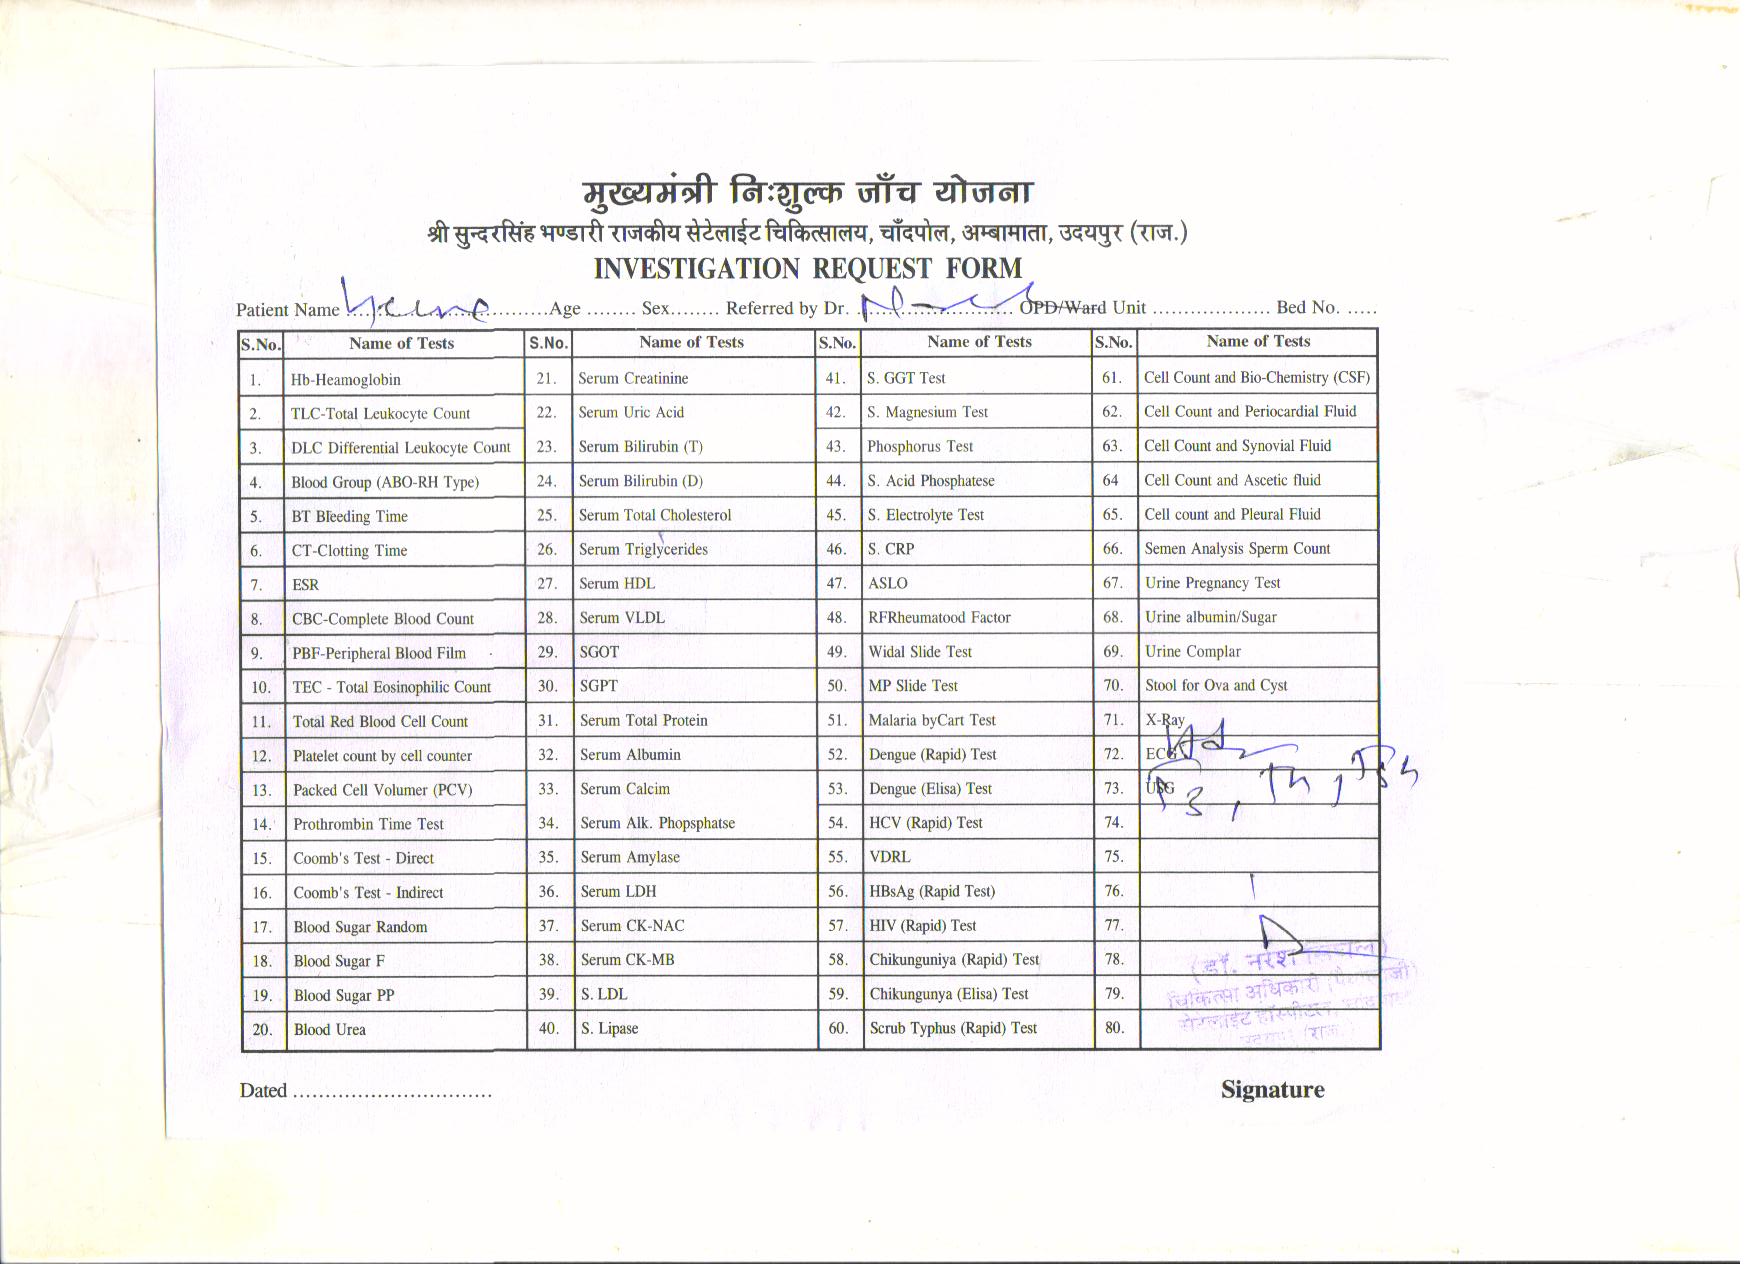 मुख्यमंत्री निःशुल्क जाँच योजना
श्री सुन्दरसिंह भण्डारी राजकीय सेटेलाईट चिकित्सालय, चाँदपोल, अम्बामाता, उदयपुर (राज.)
INVESTIGATION REQUEST FORM
Patient Name ........................Age ........ Sex........ Referred by Dr. ........................... OPD/Ward Unit ................... Bed No. .....
S.No. Name of Tests S.No. Name of Tests S.No. Name of Tests S.No. Name of Tests
1. Hb-Heamoglobin 21. Serum Creatinine 41. S. GGT Test 61. Cell Count and Bio-Chemistry (CSF)
2. TLC-Total Leukocyte Count 22. Serum Uric Acid 42. S. Magnesium Test 62. Cell Count and Periocardial Fluid
3. DLC Differential Leukocyte Count 23. Serum Bilirubin (T) 43. Phosphorus Test 63. Cell Count and Synovial Fluid
4. Blood Group (ABO-RH Type) 24. Serum Bilirubin (D) 44. S. Acid Phosphatese 64 Cell Count and Ascetic fluid
5. BT Bleeding Time 25. Serum Total Cholesterol 45. S. Electrolyte Test 65. Cell count and Pleural Fluid
6. CT-Clotting Time 26. Serum Triglycerides 46. S. CRP 66. Semen Analysis Sperm Count
7. ESR 27. Serum HDL 47. ASLO 67. Urine Pregnancy Test
8. CBC-Complete Blood Count 28. Serum VLDL 48. RFRheumatood Factor 68. Urine albumin/Sugar
9. PBF-Peripheral Blood Film 29. SGOT 49. Widal Slide Test 69. Urine Complar
10. TEC - Total Eosinophilic Count 30. SGPT 50. MP Slide Test 70. Stool for Ova and Cyst
11. Total Red Blood Cell Count 31. Serum Total Protein 51. Malaria byCart Test 71. X-Ray
12. Platelet count by cell counter 32. Serum Albumin 52. Dengue (Rapid) Test 72. ECG
13. Packed Cell Volumer (PCV) 33. Serum Calcim 53. Dengue (Elisa) Test 73. USG
T3, T4, TSH
14. Prothrombin Time Test 34. Serum Alk. Phopsphatse 54. HCV (Rapid) Test 74.
15. Coomb's Test - Direct 35. Serum Amylase 55. VDRL 75.
16. Coomb's Test - Indirect 36. Serum LDH 56. HBsAg (Rapid Test) 76.
17. Blood Sugar Random 37. Serum CK-NAC 57. HIV (Rapid) Test 77.
18. Blood Sugar F 38. Serum CK-MB 58. Chikunguniya (Rapid) Test 78.
(डॉ. नरेश
19. Blood Sugar PP 39. S. LDL 59. Chikungunya (Elisa) Test 79.
चिकित्सा अधिकारी
20. Blood Urea 40. S. Lipase 60. Scrub Typhus (Rapid) Test 80.
सेटेलाइट हॉस्पीटल,
(राज.)
Dated ..............................
Signature